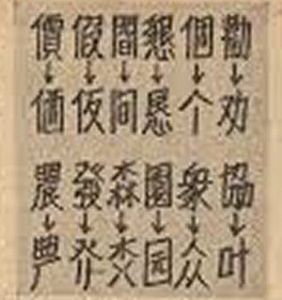 價 假 間 懇 個 勸
↓ ↓ ↓ ↓ ↓ ↓
価 仮 间 恳 个 劝
農 發 森 園 衆 協
↓ ↓ ↓ ↓ ↓ ↓
园 众 叶